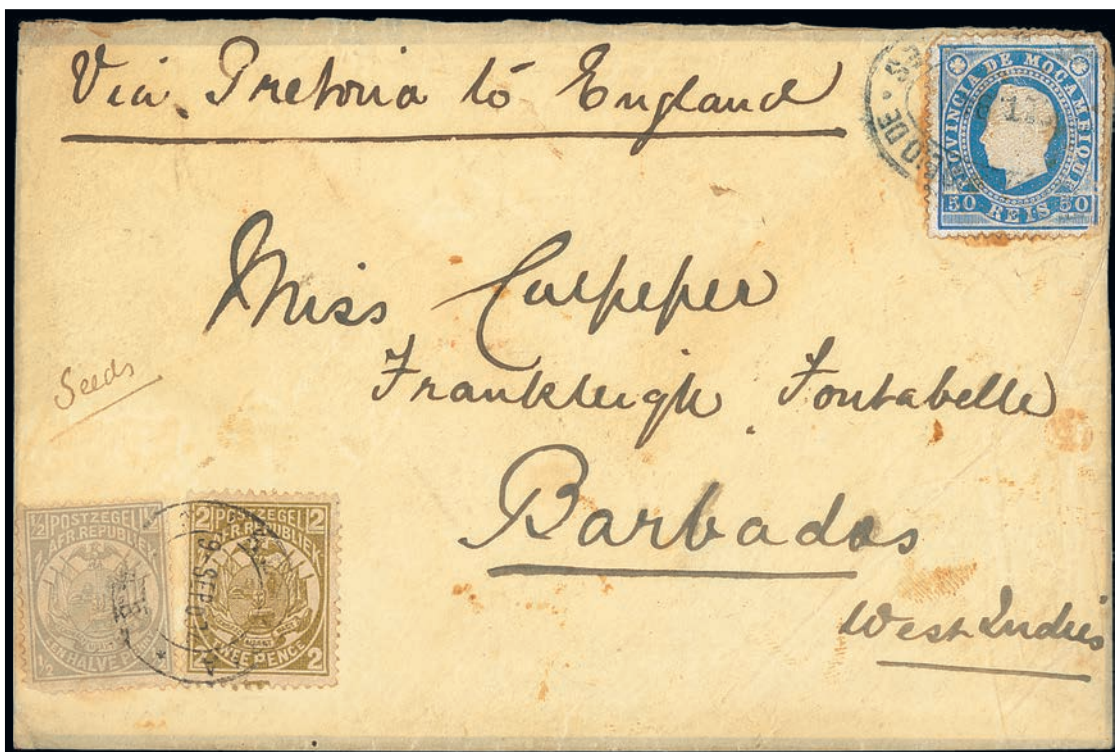 Via Pretoria to England
PROVINCIA DE MOÇAMBIQUE
50 REIS 50
Miss Culpeper
Seeds
Frankleigh Fontabelle
Barbados
West Indies
½ POSTZEGEL ½
Z. AFR. REPUBLIEK
EEN HALVE PENNY
2 POSTZEGEL 2
Z. AFR. REPUBLIEK
TWEE PENCE 2
SEP